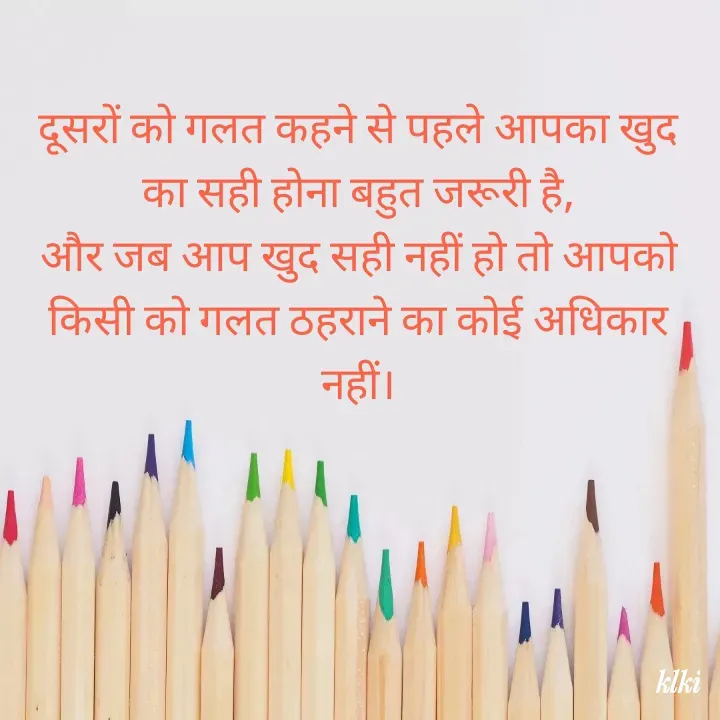 दूसरों को गलत कहने से पहले आपका खुद
का सही होना बहुत जरूरी है,
और जब आप खुद सही नहीं हो तो आपको
किसी को गलत ठहराने का कोई अधिकार
नहीं।
klki